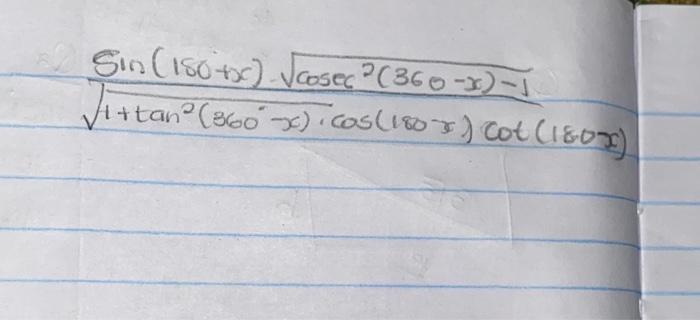 Sin(180+x) . √cosec²(360-x)-1
√1+tan²(360°-x) . cos(180-x) cot(180-x)